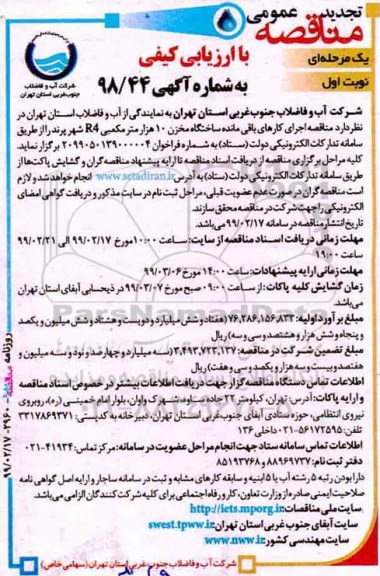 تجدید مناقصه عمومی
یک مرحله‌ای
با ارزیابی کیفی
نوبت اول
به شماره آگهی ۹۸/۴۴
شرکت آب و فاضلاب
جنوب غربی استان تهران
شرکت آب و فاضلاب جنوب غربی استان تهران به نمایندگی از آب و فاضلاب استان تهران در
نظر دارد مناقصه اجرای کارهای باقی مانده ساختگاه مخزن ۱۰ هزار متر مکعبی R4 شهر پرند را از طریق
سامانه تدارکات الکترونیکی دولت (ستاد) به شماره فراخوان ۲۰۹۹۰۵۰۱۳۹۰۰۰۰۰۴ برگزار نماید.
کلیه مراحل برگزاری مناقصه از دریافت اسناد مناقصه تا ارایه پیشنهاد مناقصه گران و گشایش پاکت‌ها از
طریق سامانه تدارکات الکترونیکی دولت (ستاد) به آدرس www.setadiran.ir انجام خواهد شد و لازم
است مناقصه گران در صورت عدم عضویت قبلی، مراحل ثبت نام در سایت مذکور و دریافت گواهی امضای
الکترونیکی را جهت شرکت در مناقصه محقق سازند.
تاریخ انتشار مناقصه در سامانه ۹۹/۰۲/۱۷ می‌باشد.
مهلت زمانی دریافت اسناد مناقصه از سایت: ساعت ۱۰:۰۰ مورخ ۹۹/۰۲/۱۷ الی ۹۹/۰۲/۲۱
ساعت ۱۹:۰۰
مهلت زمانی ارایه پیشنهادات: ساعت ۱۴:۰۰ مورخ ۹۹/۰۳/۰۶
زمان گشایش کلیه پاکات: از ساعت ۰۹:۰۰ صبح مورخ ۹۹/۰۳/۰۷ در ذیحسابی آبفای استان تهران
می‌باشد.
مبلغ برآورد اولیه: ۷۶,۲۸۶,۱۵۶,۸۳۳ (هفتاد و شش میلیارد و دویست و هشتاد و شش میلیون و یکصد
و پنجاه و شش هزار و هشتصد و سی و سه) ریال
مبلغ تضمین شرکت در مناقصه: ۳,۴۹۳,۷۲۳,۱۳۷ (سه میلیارد و چهارصد و نود و سه میلیون و
هفتصد و بیست و سه هزار و یکصد و سی و هفت) ریال
اطلاعات تماس دستگاه مناقصه گزار جهت دریافت اطلاعات بیشتر در خصوص اسناد مناقصه
و ارایه پاکات: آدرس تهران، کیلومتر ۲۲ جاده ساوه، شهرک واوان، بلوار امام خمینی (ره)، روبروی
نیروی انتظامی، حوزه ستادی آبفای جنوب غربی استان تهران، دبیرخانه به کدپستی: ۳۳۱۷۸۶۹۳۷۱
تلفن: ۵۶۱۷۲۵۹۵-۰۲۱ داخلی ۱۳۶
اطلاعات تماس سامانه ستاد جهت انجام مراحل عضویت در سامانه: مرکز تماس: ۴۱۹۳۴-۰۲۱
دفتر ثبت نام: ۸۸۹۶۹۷۳۷ و ۸۵۱۹۳۷۶۸
دارا بودن رتبه ۵ رشته آب یا ۵ ابنیه و سابقه کارهای مشابه و ثبت در سامانه ساجار و ارایه اصل گواهی نامه
صلاحیت ایمنی صادره از وزارت تعاون، کار و رفاه اجتماعی برای کلیه شرکت کنندگان الزامی می‌باشد.
سایت ملی مناقصات: http://iets.mporg.ir
سایت آبفای جنوب غربی استان تهران: swest.tpww.ir
سایت مهندسی کشور: www.nww.ir
شرکت آب و فاضلاب جنوب غربی استان تهران (سهامی خاص)